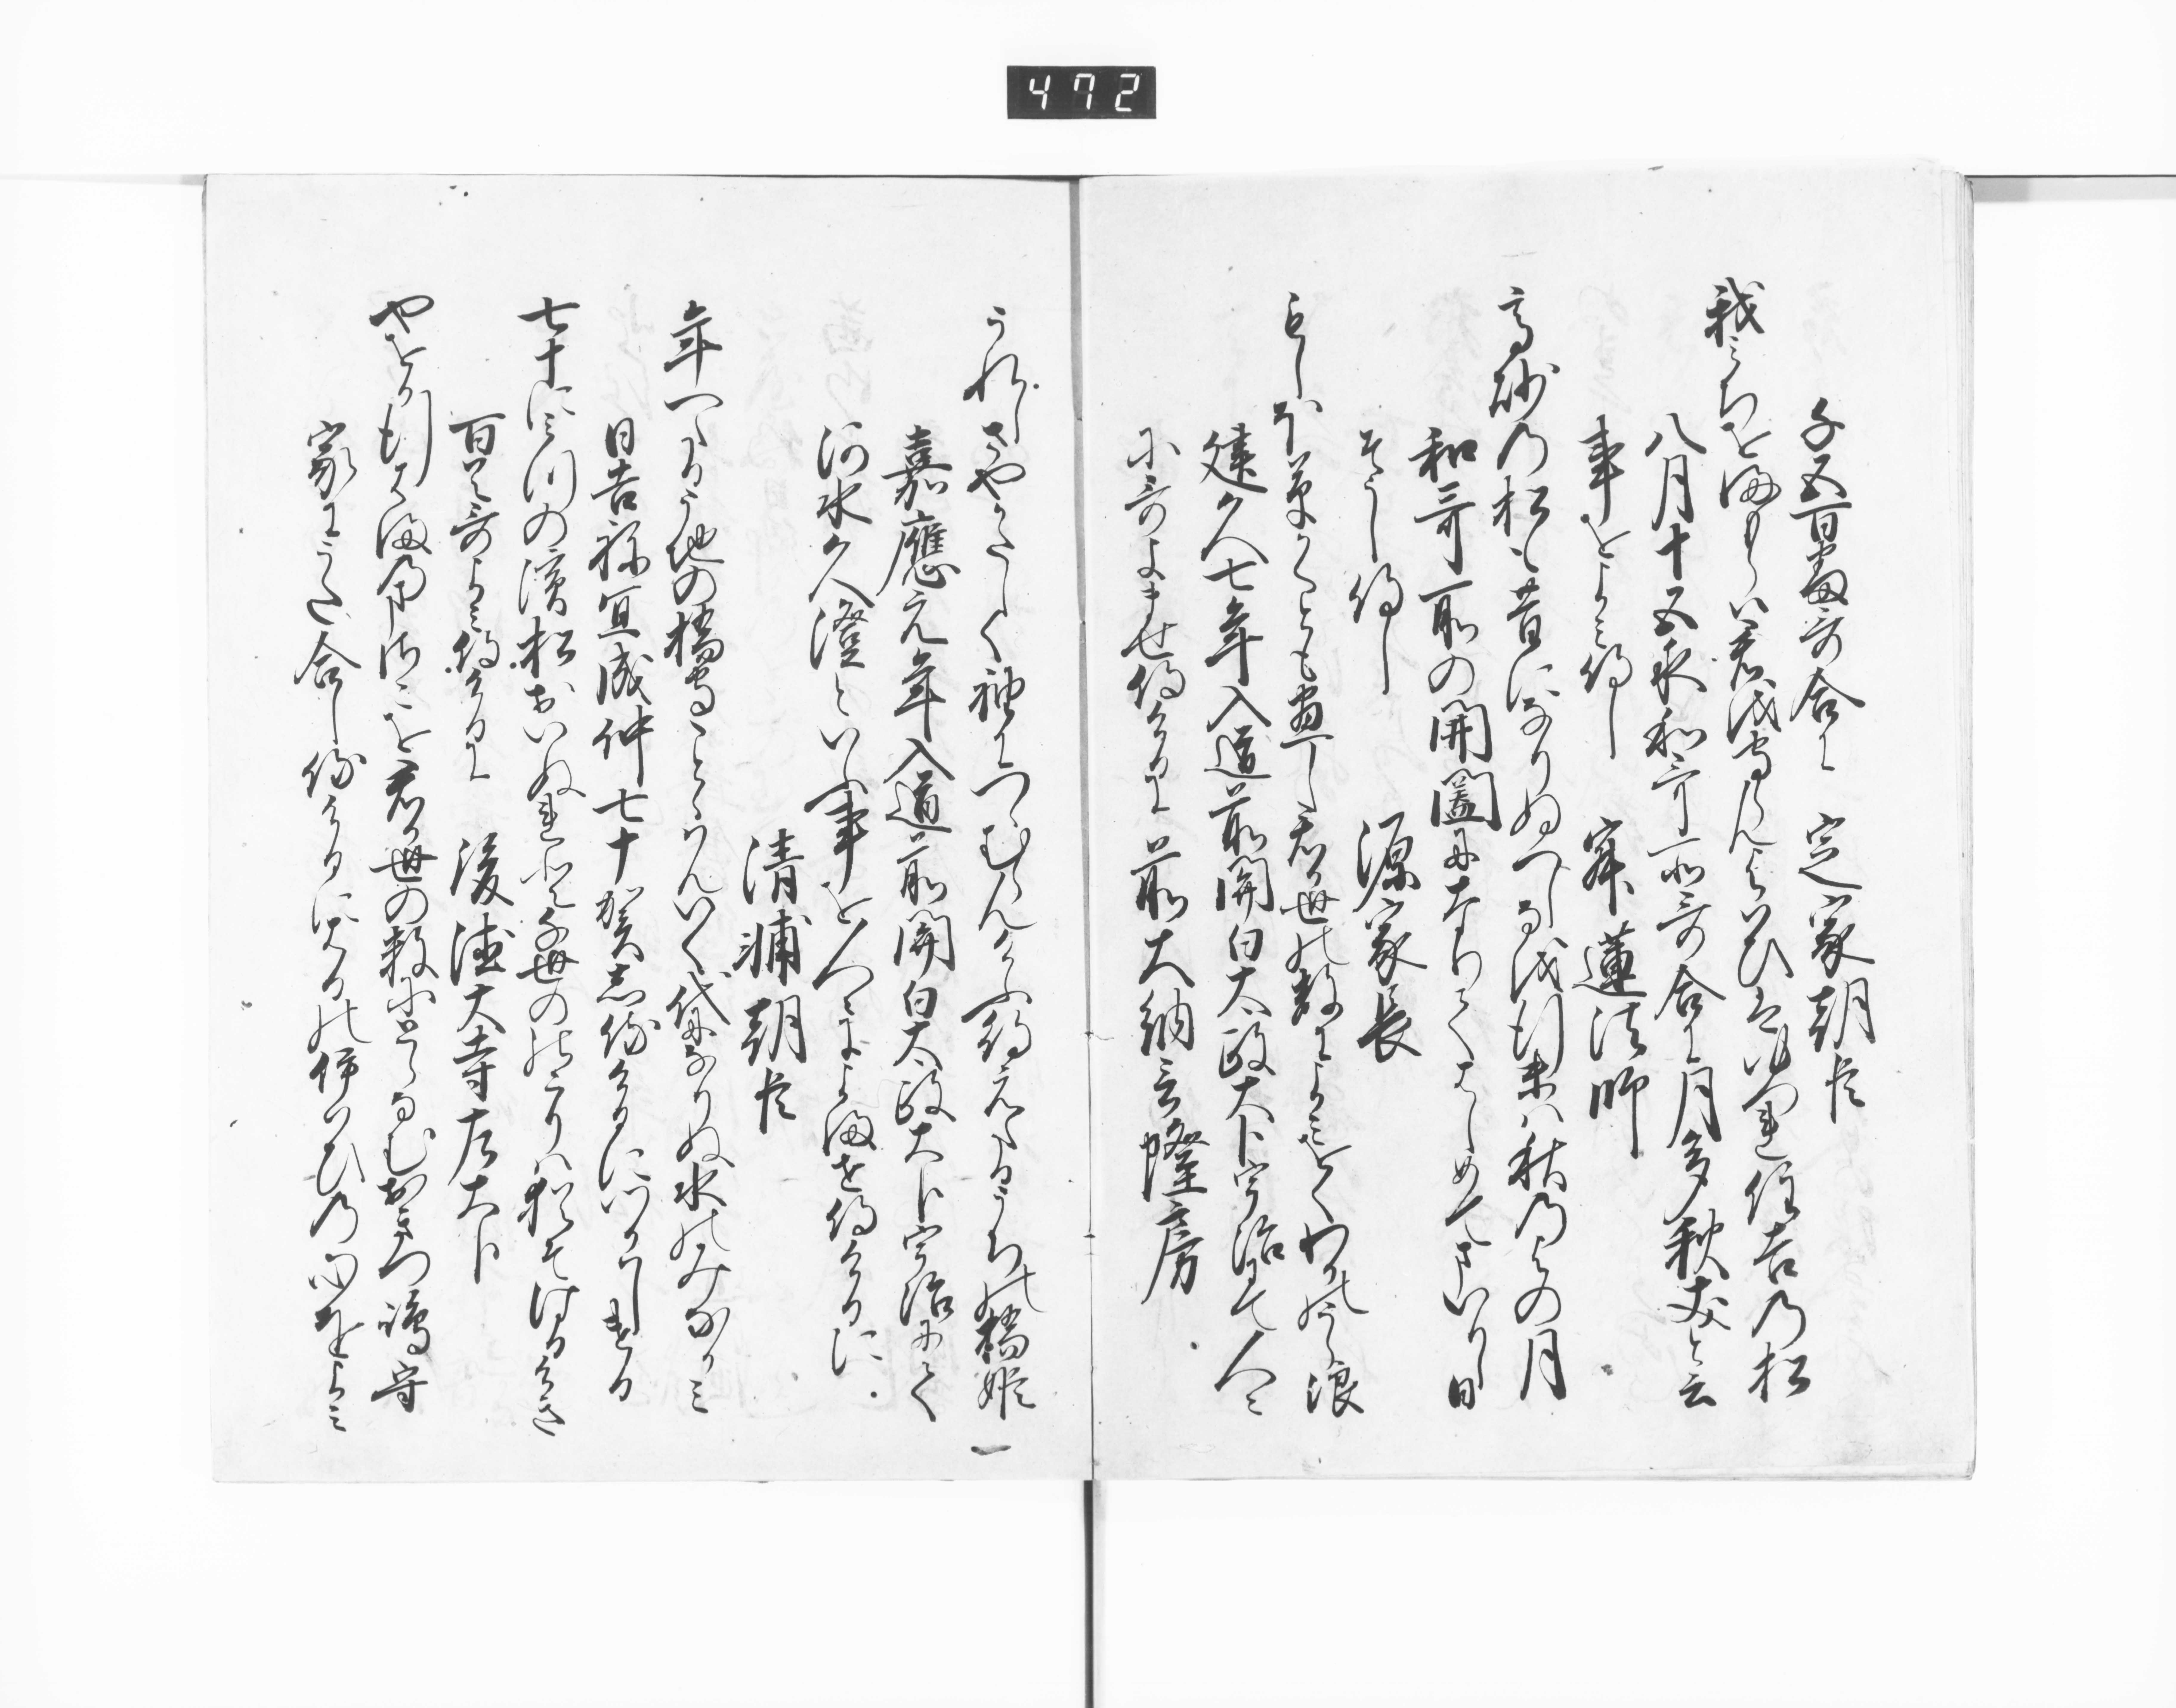 472
千五百番哥合に 定家朝臣
我みちをまもらは君を守らんよはひはゆつれ住吉の松
八月十五夜和哥所哥合に月多秋友と云
事をよみ侍し 寂蓮法師
高砂の松も昔になりぬへしなを行末は秋のよの月
和哥所の開闔になりてはしめてまいりし日
そうし侍し 源家長
もしほ草かくとも盡し君か世の数によみをくわかの浦浪
建久七年入道前關白太政大臣宇治にて人々
に哥よませ侍けるに 前大納言隆房
うれしさやかたしく袖につゝむらんけふ待えたるうちの橋姫
嘉應元年入道前關白太政大臣宇治にて
河水久澄といふ事を人々によませ侍けるに
清輔朝臣
年へたるうちの橋守ことゝはんいく代になりぬ水のみなかみ
日吉祢宜成仲七十賀し侍けるにつかはしける
七十にみつの濱松おいぬれと千世の残りは猶そはるけき
百首哥よみ侍けるに 後徳大寺左大臣
やをか行はまのまさこを君か世の数にとらなむおきつ嶋守
家に哥合し侍けるに春の祝ひの心をよみ